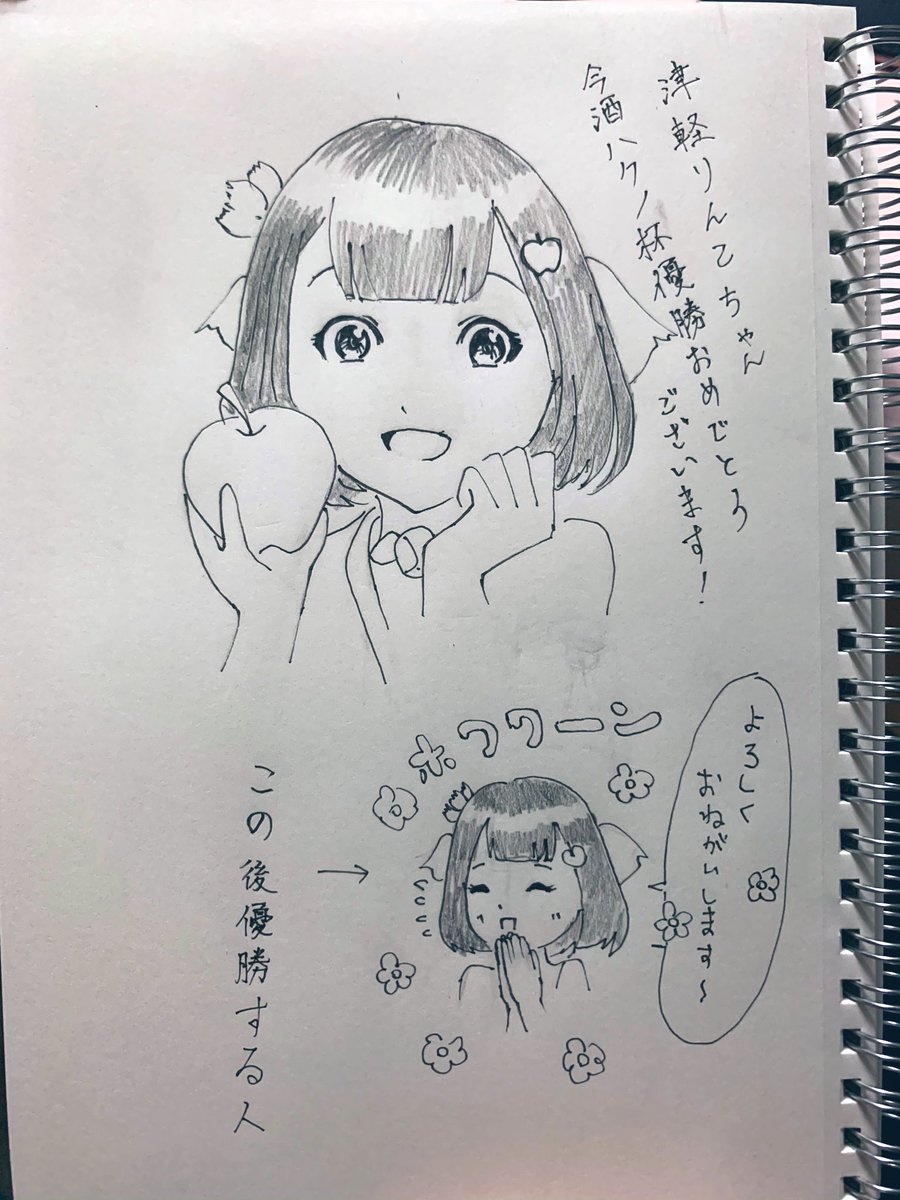 津軽りんこちゃん
今酒ハクノ杯優勝おめでとう
ございます!
ホワワーン
よろしく
おねがいします〜
この後優勝する人
→